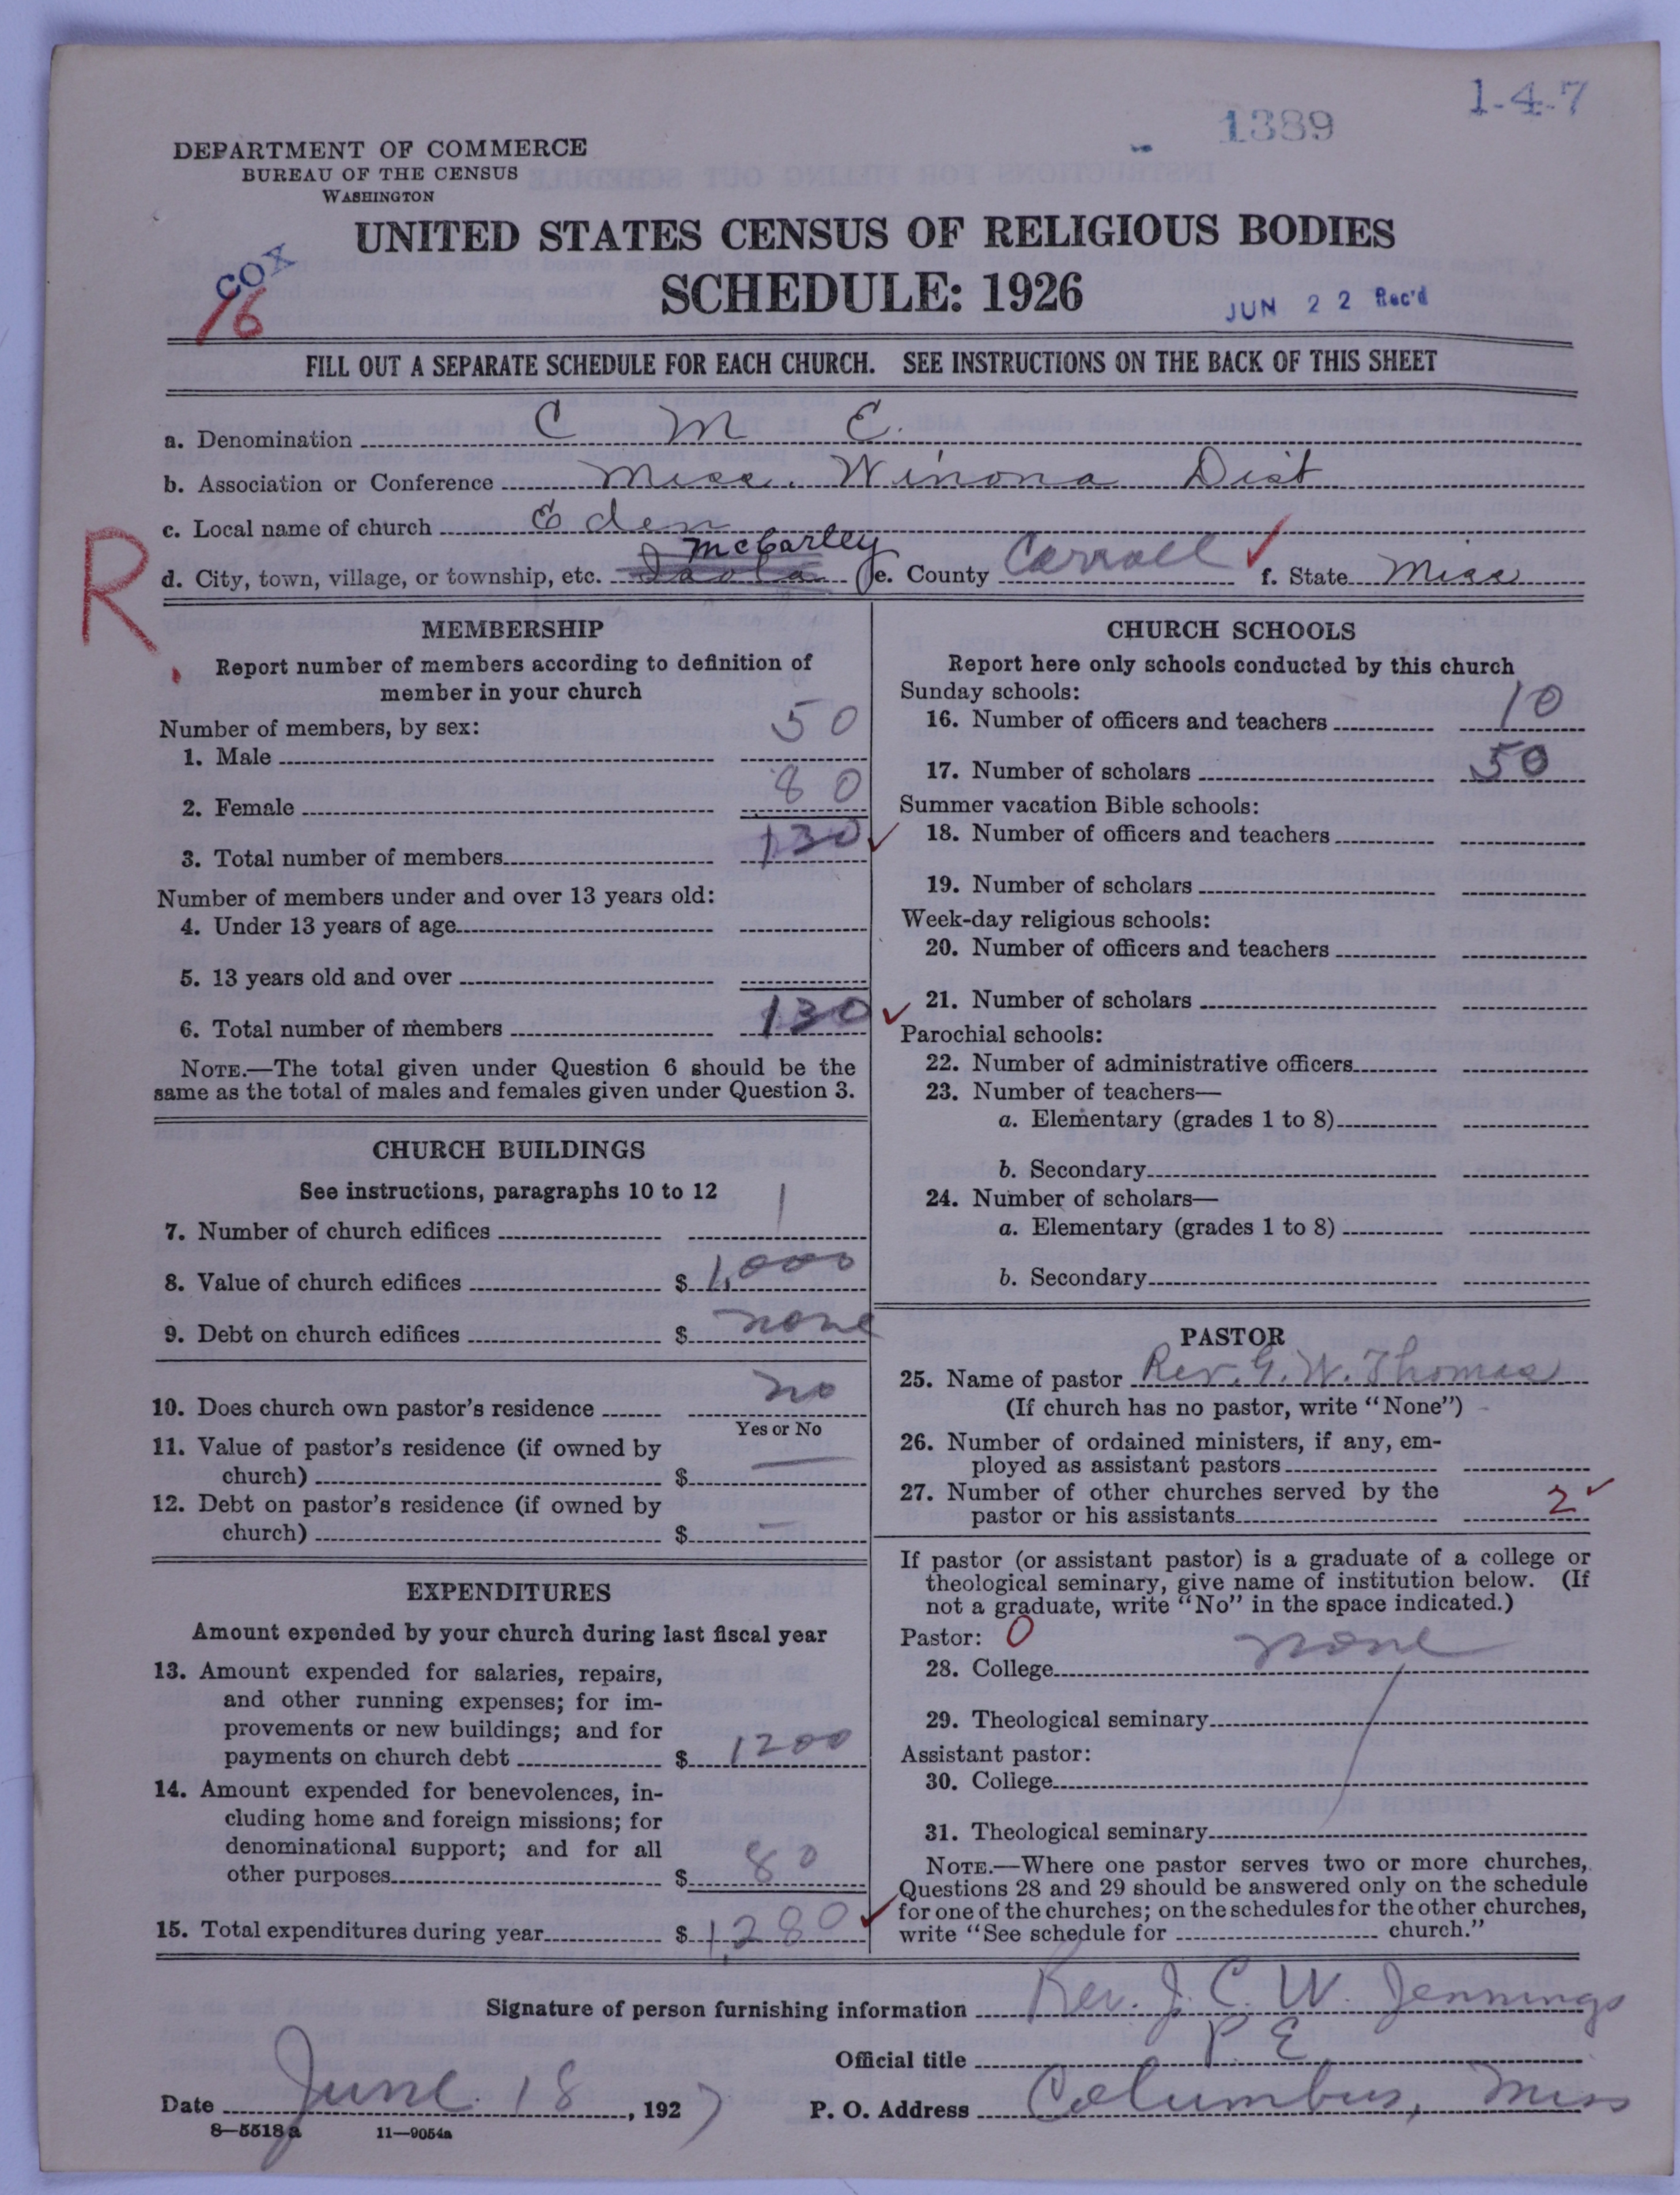 1-4-7
1389
DEPARTMENT OF COMMERCE
BUREAU OF THE CENSUS
WASHINGTON
UNITED STATES CENSUS OF RELIGIOUS BODIES
SCHEDULE: 1926
COX
16
JUN 22 Rec'd
FILL OUT A SEPARATE SCHEDULE FOR EACH CHURCH. SEE INSTRUCTIONS ON THE BACK OF THIS SHEET
a. Denomination C M E.
b. Association or Conference Miss. Winona Dist
c. Local name of church Eden
R.
d. City, town, village, or township, etc. McCarley e. County Carroll f. State Miss
MEMBERSHIP
Report number of members according to definition of
member in your church
Number of members, by sex:
1. Male 50
2. Female 80
3. Total number of members 130
Number of members under and over 13 years old:
4. Under 13 years of age
5. 13 years old and over
6. Total number of members 130
NOTE.—The total given under Question 6 should be the
same as the total of males and females given under Question 3.
CHURCH BUILDINGS
See instructions, paragraphs 10 to 12
7. Number of church edifices 1
8. Value of church edifices $ 1,000
9. Debt on church edifices $ none
10. Does church own pastor's residence no
Yes or No
11. Value of pastor's residence (if owned by
church) $ —
12. Debt on pastor's residence (if owned by
church) $ —
EXPENDITURES
Amount expended by your church during last fiscal year
13. Amount expended for salaries, repairs,
and other running expenses; for im-
provements or new buildings; and for
payments on church debt $ 1200
14. Amount expended for benevolences, in-
cluding home and foreign missions; for
denominational support; and for all
other purposes $ 80
15. Total expenditures during year $ 1,280
CHURCH SCHOOLS
Report here only schools conducted by this church
Sunday schools:
16. Number of officers and teachers 10
17. Number of scholars 50
Summer vacation Bible schools:
18. Number of officers and teachers
19. Number of scholars
Week-day religious schools:
20. Number of officers and teachers
21. Number of scholars
Parochial schools:
22. Number of administrative officers
23. Number of teachers—
a. Elementary (grades 1 to 8)
b. Secondary
24. Number of scholars—
a. Elementary (grades 1 to 8)
b. Secondary
PASTOR
25. Name of pastor Rev. G. W. Thomas
(If church has no pastor, write "None")
26. Number of ordained ministers, if any, em-
ployed as assistant pastors
27. Number of other churches served by the
pastor or his assistants 2
If pastor (or assistant pastor) is a graduate of a college or
theological seminary, give name of institution below. (If
not a graduate, write "No" in the space indicated.)
Pastor: 0
28. College none
29. Theological seminary
Assistant pastor:
30. College
31. Theological seminary
NOTE.—Where one pastor serves two or more churches,
Questions 28 and 29 should be answered only on the schedule
for one of the churches; on the schedules for the other churches,
write "See schedule for church."
Signature of person furnishing information Rev. J. C. W. Jennings
Official title P. E
Date June 18, 1927 P. O. Address Columbus, Miss
8—5518a 11—9054a